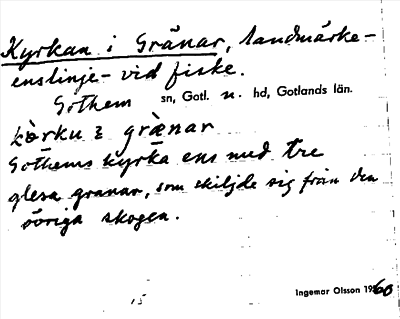 Kyrkan i Gränar, landmärke-
enslinje- vid fiske.
Gothem sn, Gotl. n. hd, Gotlands län.
gränar
Gothems kyrka ens med tre
glesa granar, som skiljde sig från den
övriga skogen.
Ingemar Olsson 1960
15